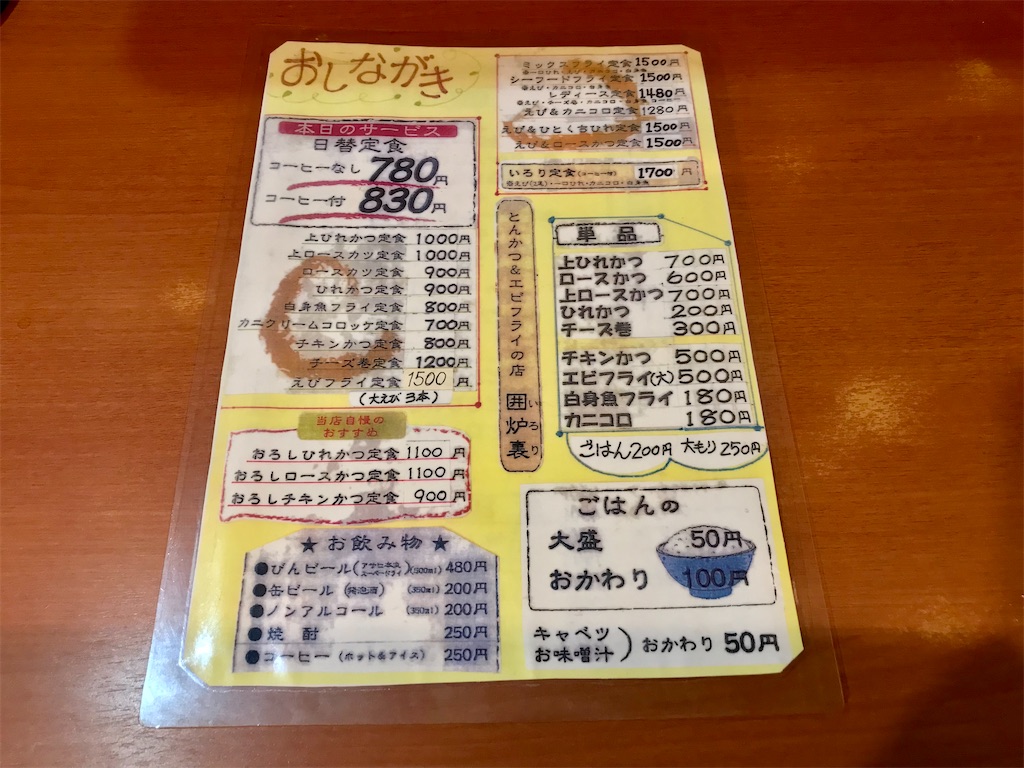 おしながき
本日のサービス
日替定食
コーヒーなし 780円
コーヒー付 830円
上ひれかつ定食 1000円
上ロースカツ定食 1000円
ロースカツ定食 900円
ひれかつ定食 900円
白身魚フライ定食 800円
カニクリームコロッケ定食 700円
チキンかつ定食 800円
チーズ巻定食 1200円
えびフライ定食 1500円
(大えび3本)
当店自慢の
おすすめ
おろしひれかつ定食 1100円
おろしロースかつ定食 1100円
おろしチキンかつ定食 900円
★お飲み物★
●びんビール(アサヒ スーパードライ)(500ml) 480円
●缶ビール(発泡酒)(350ml) 200円
●ノンアルコール (350ml) 200円
●焼酎 250円
●コーヒー(ホット&アイス) 250円
ミックスフライ定食 1500円
シーフードフライ定食 1500円
※えび・カニコロ・白身魚
レディース定食 1480円
えび&カニコロ定食 1280円
えび&ひとくちひれ定食 1500円
えび&ロースかつ定食 1500円
いろり定食(コーヒー付) 1700円
※えび(2本)・一口ひれ・カニコロ・白身魚
とんかつ&エビフライの店 囲炉裏 いろり
単品
上ひれかつ 700円
ロースかつ 600円
上ロースかつ 700円
ひれかつ 200円
チーズ巻 300円
チキンかつ 500円
エビフライ(大) 500円
白身魚フライ 180円
カニコロ 180円
ごはん200円 大もり250円
ごはんの
大盛 50円
おかわり 100円
キャベツ
お味噌汁)おかわり 50円